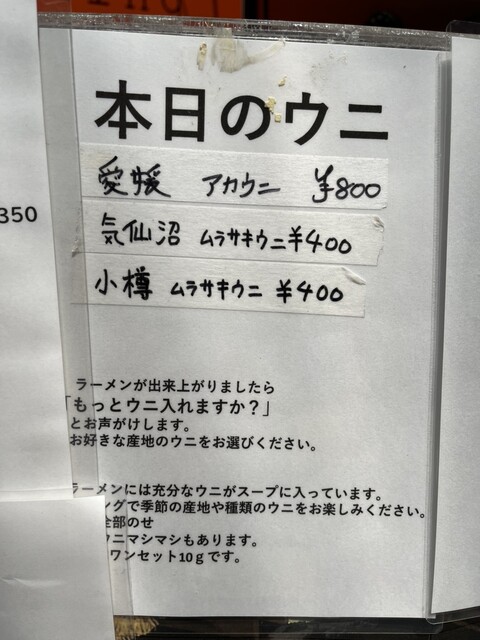 350
本日のウニ
愛媛 アカウニ ¥800
気仙沼 ムラサキウニ ¥400
小樽 ムラサキウニ ¥400
ラーメンが出来上がりましたら
「もっとウニ入れますか？」
とお声がけします。
お好きな産地のウニをお選びください。
ラーメンには充分なウニがスープに入っています。
ングで季節の産地や種類のウニをお楽しみください。
全部のせ
ウニマシマシもあります。
ワンセット10ｇです。